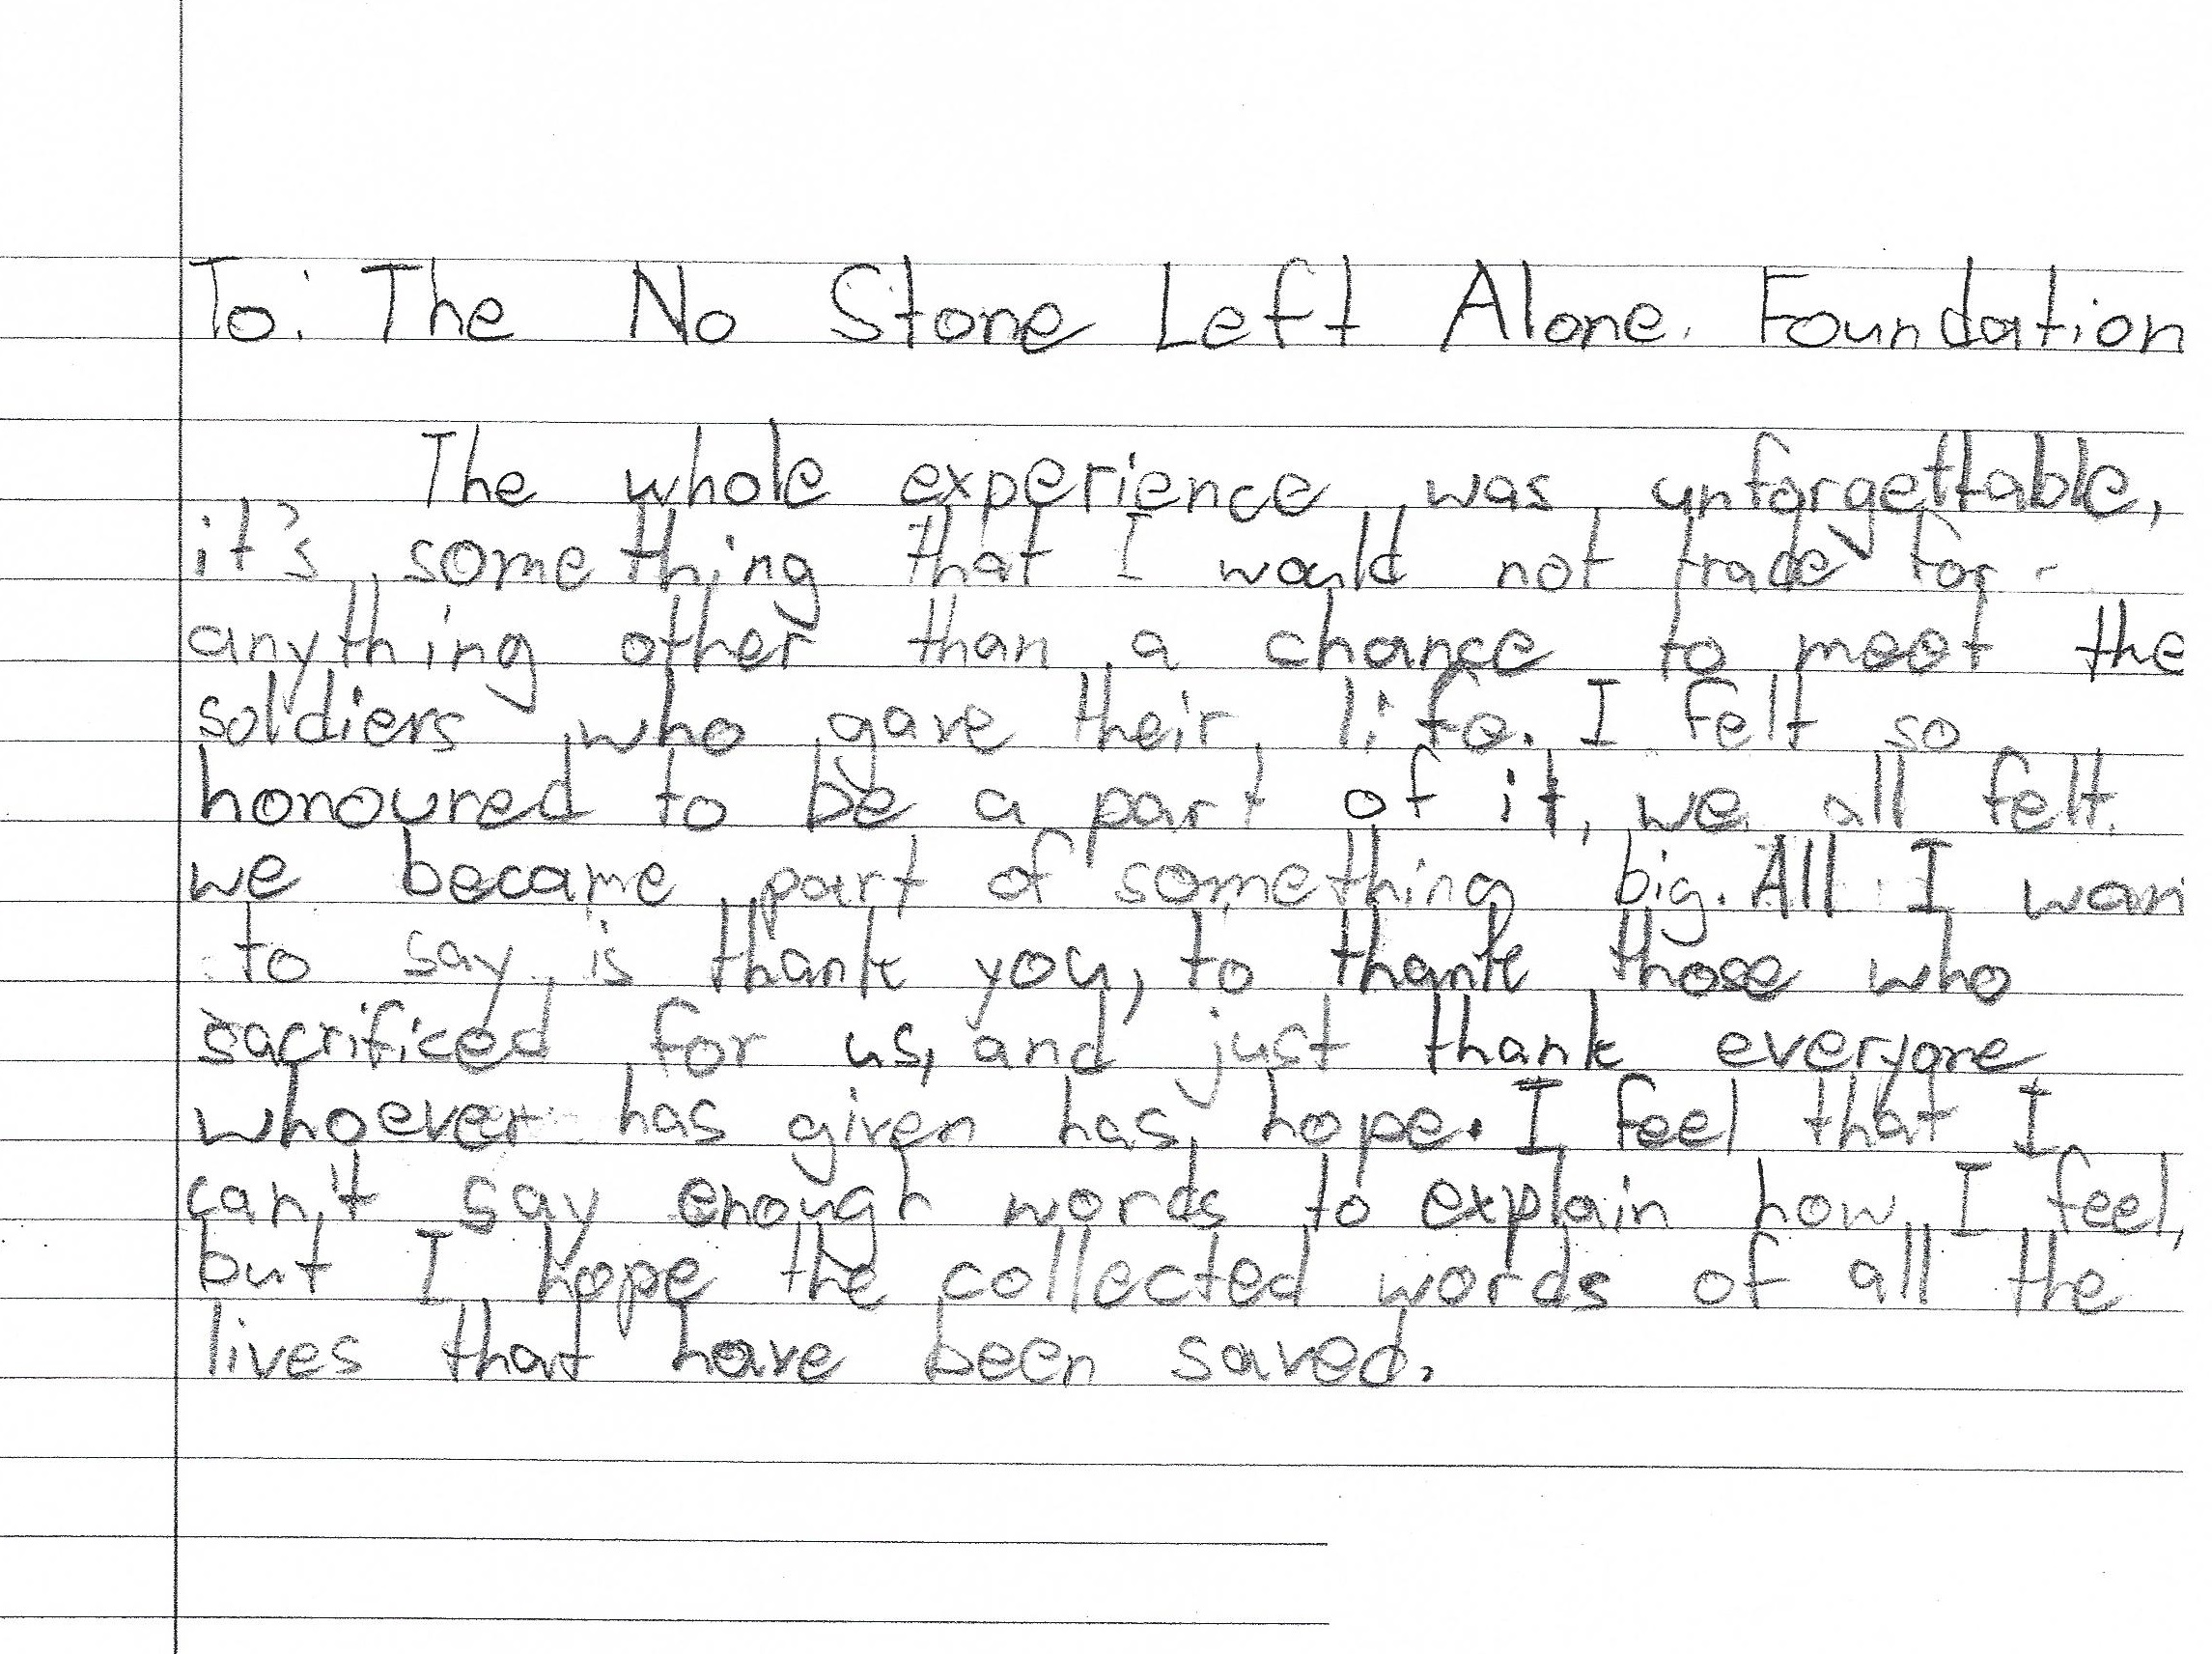 To: The No Stone Left Alone. Foundation
The whole experience was unforgettable,
it's something that I would not trade for
anything other than a chance to meet the
soldiers who gave their life. I felt so
honoured to be a part of it, we all felt
we became part of something big. All I wan
to say is thank you, to thank those who
sacrificed for us, and just thank everyone
whoever has given has hope. I feel that I
can't say enough words to explain how I feel,
but I hope the collected words of all the
lives that have been saved.